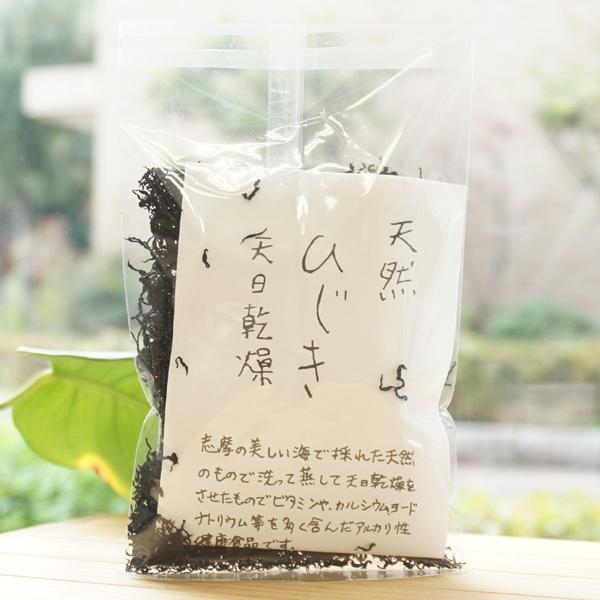 天然
ひじき
天日乾燥
志摩の美しい海で採れた天然
のもので洗って蒸して天日乾燥を
させたものでビタミンや、カルシウムヨード
ナトリウム等を多く含んだアルカリ性
健康食品です